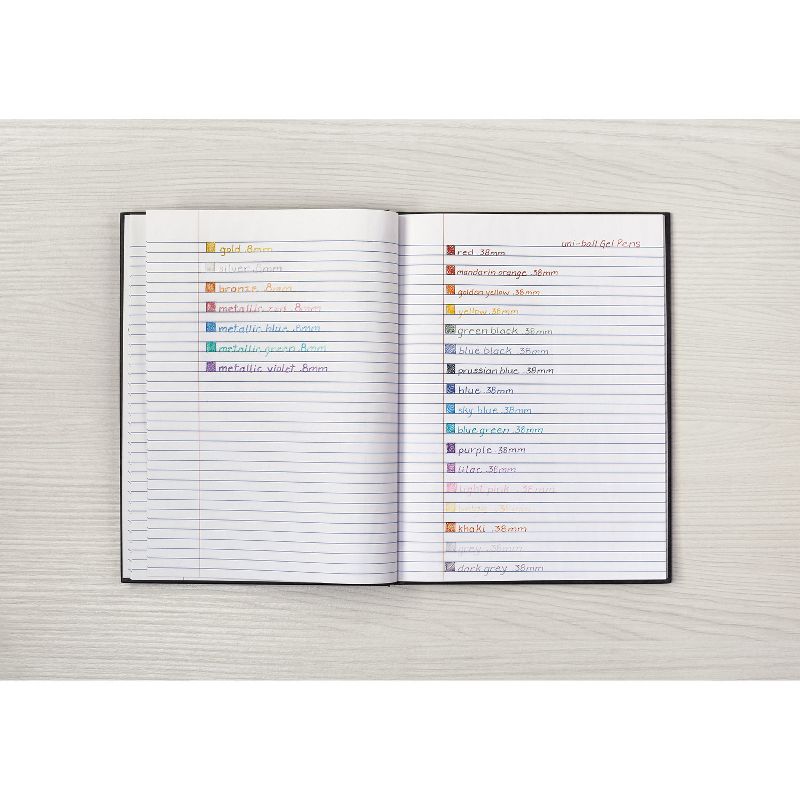 gold .8mm
silver .8mm
bronze .8mm
metallic red .8mm
metallic blue .8mm
metallic green .8mm
metallic violet .8mm
uni-ball Gel Pens
red .38mm
mandarin orange .38mm
golden yellow .38mm
yellow .38mm
green black .38mm
blue black .38mm
prussian blue .38mm
blue .38mm
sky blue .38mm
blue green .38mm
purple .38mm
lilac .38mm
light pink .38mm
beige .38mm
khaki .38mm
grey .38mm
dark grey .38mm